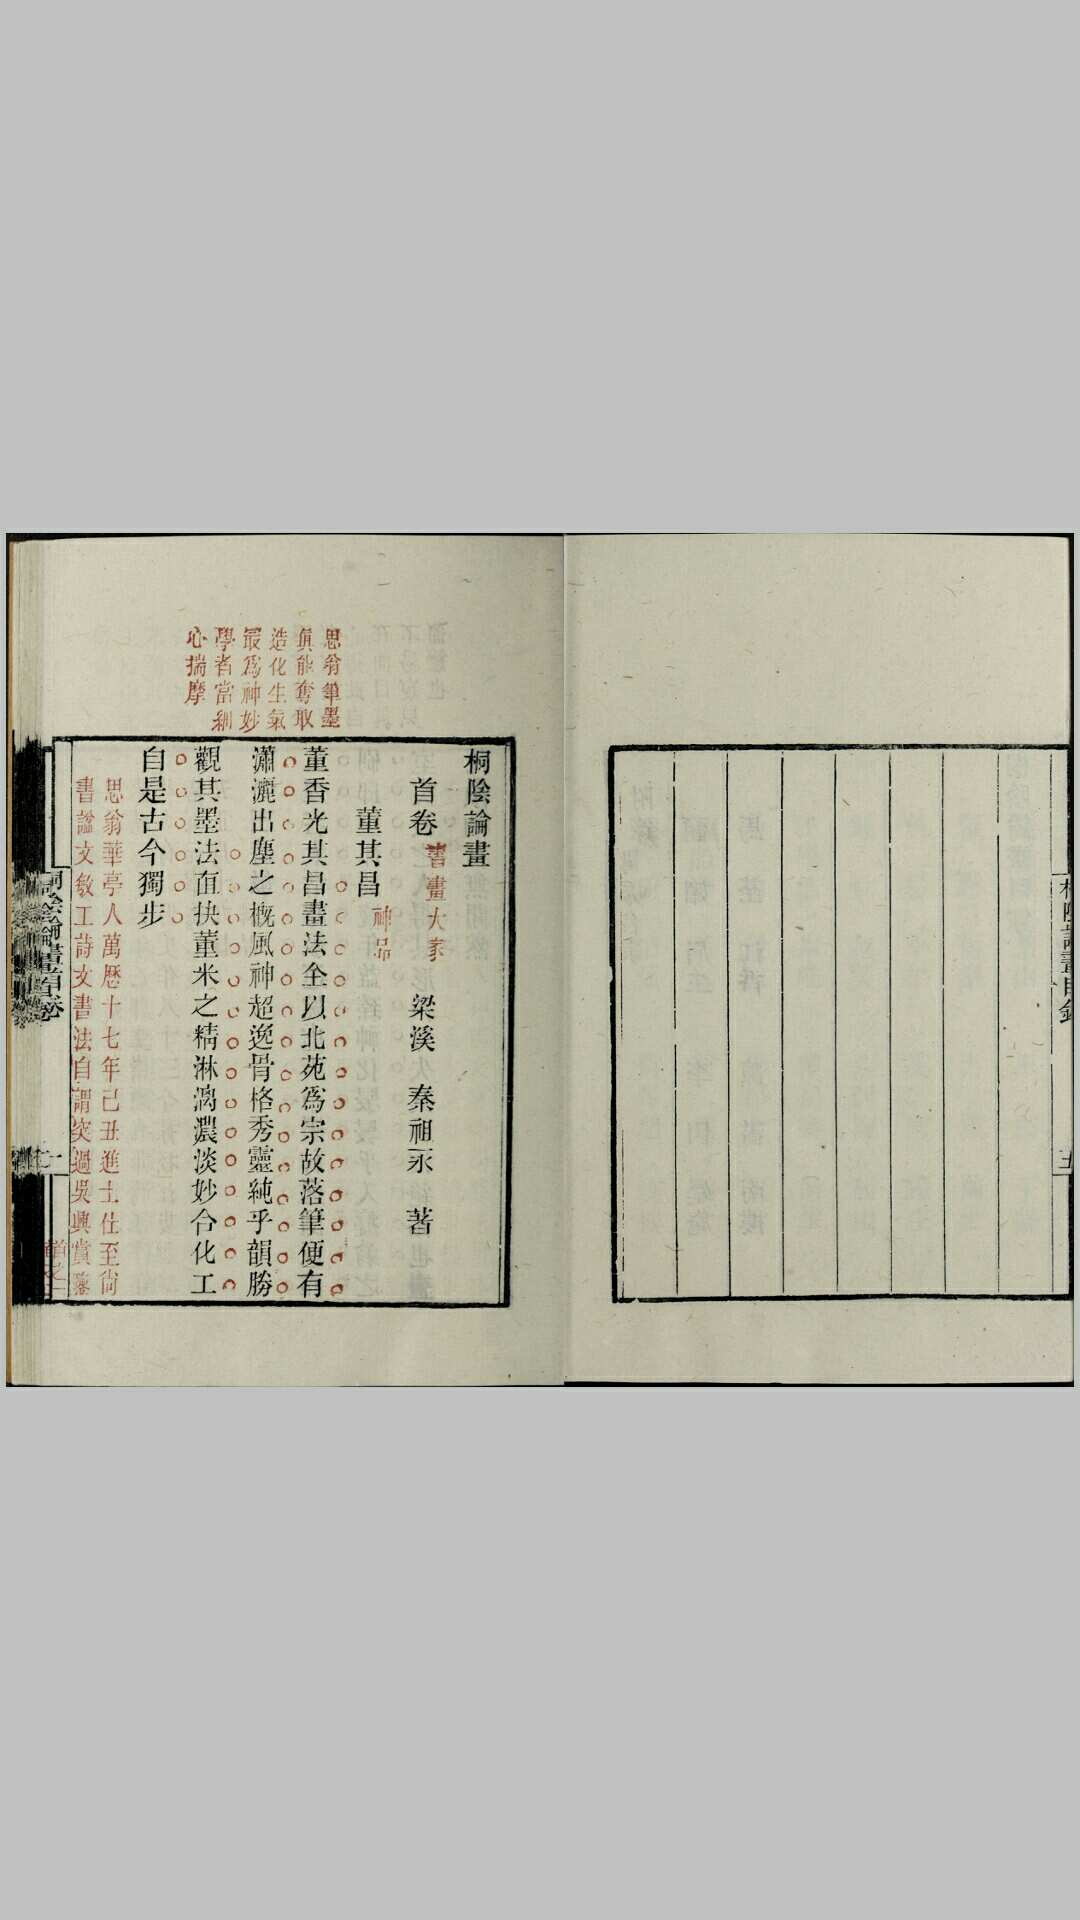 桐陰論畫
首卷 書畫大家 梁溪 秦祖永 著
董其昌 神品
董香光其昌畫法全以北苑爲宗故落筆便有
瀟灑出塵之概風神超逸骨格秀靈純乎韻勝
觀其墨法直抉董米之精淋漓濃淡妙合化工
自是古今獨步
思翁華亭人萬歷十七年己丑進士仕至尚
書諡文敏工詩文書法自謂突過吳興賞鑒
思翁筆墨
眞能奪取
造化生氣
最爲神妙
學者當細
心揣摩
桐陰論畫首卷
一